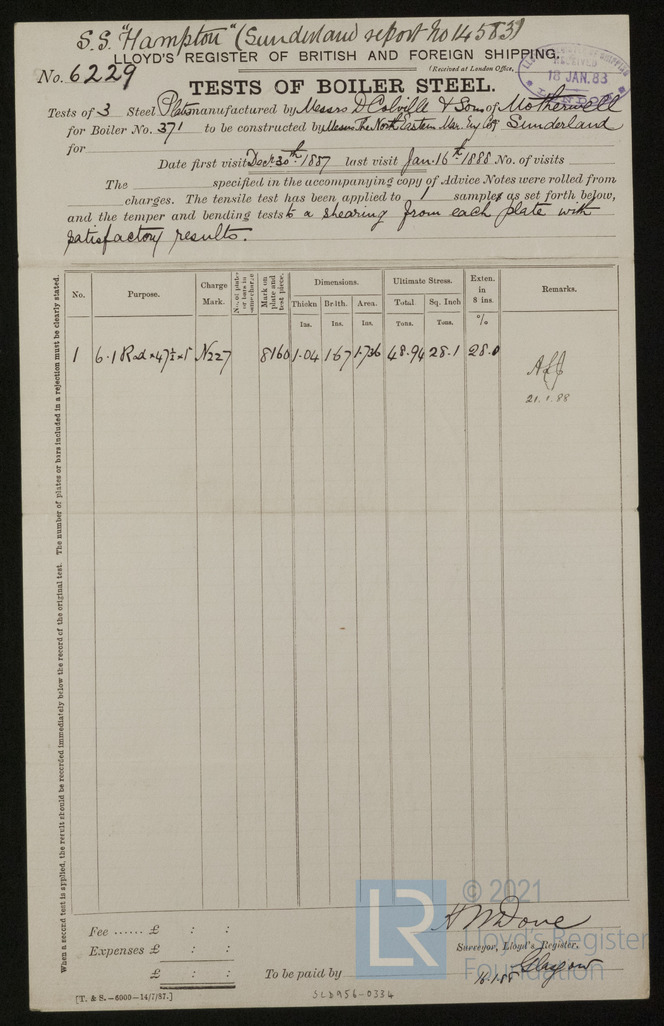 S.S. "Hampton" (Sunderland report No 14583)
LLOYD'S REGISTER OF BRITISH AND FOREIGN SHIPPING.
(Received at London Office,
18 JAN. 83
No. 6229
TESTS OF BOILER STEEL.
Tests of 3 Steel Plates manufactured by Messrs D Colville & Sons of Motherwell
for Boiler No. 371 to be constructed by Messrs The North Eastern Mar. Eng Coy Sunderland
for
Date first visit Decr. 30th 1887 last visit Jan. 16th 1888 No. of visits
The specified in the accompanying copy of Advice Notes were rolled from
charges. The tensile test has been applied to 1 samples as set forth below,
and the temper and bending tests to a shearing from each plate with
satisfactory results.
When a second test is applied, the result should be recorded immediately below the record of the original test. The number of plates or bars included in a rejection must be clearly stated.
No. Purpose. Charge Mark. No. of plates or bars in same charge Mark on plate and test piece. Dimensions. Ultimate Stress. Exten. in 8 ins. Remarks.
Thickn Br'dth. Area. Total. Sq. Inch
Ins. Ins. Ins. Tons. Tons. %
1 6.1 Rad × 47½ × 5 N227 8160 1.04 1.67 1.736 48.94 28.1 28.0
21.1.88
Fee ...... £ : :
Expenses £ : :
£ : :
To be paid by
H W Dove
Surveyor, Lloyd's Register.
Glasgow
16.1.88
[T. & S.—6000—14/7/87.]
SLD956-0334
LR
© 2021
Lloyd's Register
Foundation